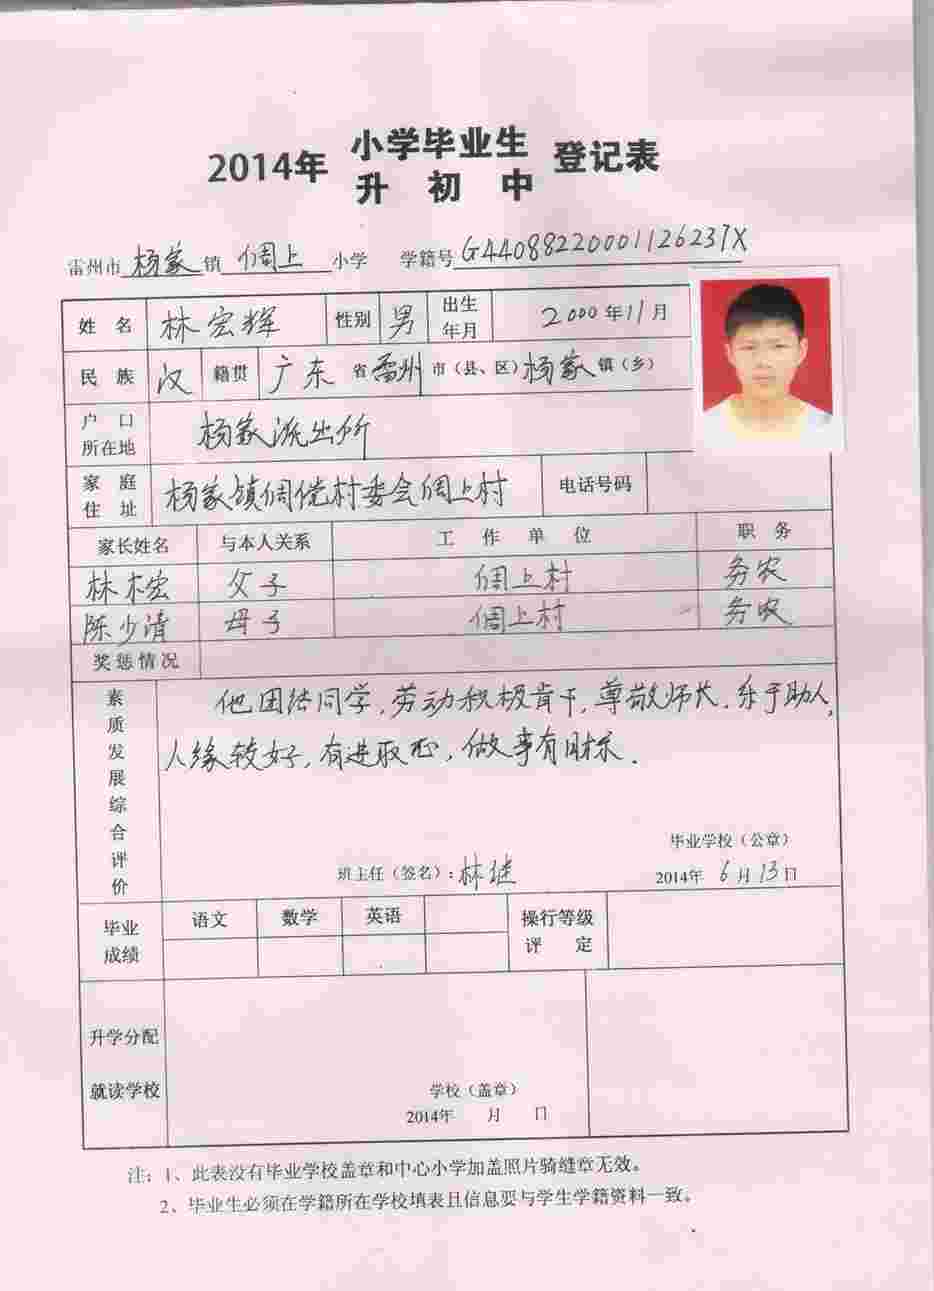 2014年 小学毕业生 登记表
升初中
雷州市 杨家 镇 倜上 小学 学籍号 G44088220001126237X
姓名 林宏辉 性别 男 出生年月 2000年11月
民族 汉 籍贯 广东省雷州市(县、区)杨家镇(乡)
户口所在地 杨家派出所
家庭住址 杨家镇倜傥村委会倜上村 电话号码
家长姓名 与本人关系 工作单位 职务
林木宏 父子 倜上村 务农
陈少清 母子 倜上村 务农
奖惩情况
素质发展综合评价
他团结同学,劳动积极肯干,尊敬师长,乐于助人,
人缘较好,有进取心,做事有目标.
毕业学校(公章)
班主任(签名):林继 2014年6月13日
毕业成绩 语文 数学 英语 操行等级评定
升学分配
就读学校
学校(盖章)
2014年 月 日
注:1、此表没有毕业学校盖章和中心小学加盖照片骑缝章无效。
2、毕业生必须在学籍所在学校填表且信息要与学生学籍资料一致。